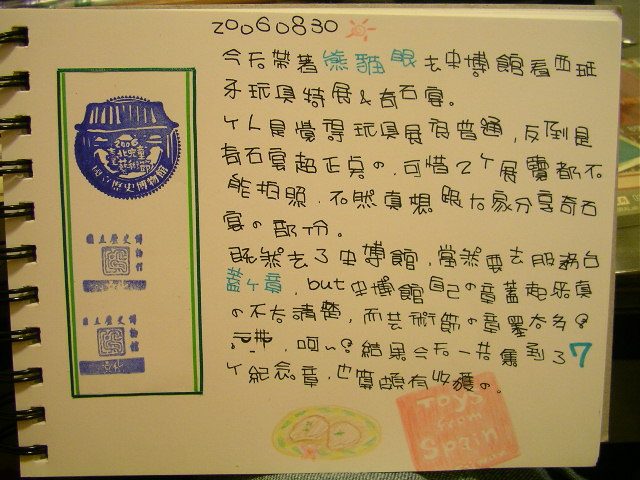 20060830
今天帶著熊貓眼去史博館看西班
牙玩具特展&奇石宴。
個人是覺得玩具展很普通，反倒是
奇石宴超正點の，可惜2個展覽都不
能拍照，不然真想跟大家分享奇石
宴の部份。
既然去了史博館，當然要去服務台
蓋個章，but史博館自己の章蓋起來真
の不太清楚，而藝術節の章墨太多
，呵~結果今天一共集到了7
個紀念章，也算頗有收穫の。
2006
臺北兒童
藝術節
國立歷史博物館
國立歷史博
物館
國立歷史博
物館
Toys
from
Spain